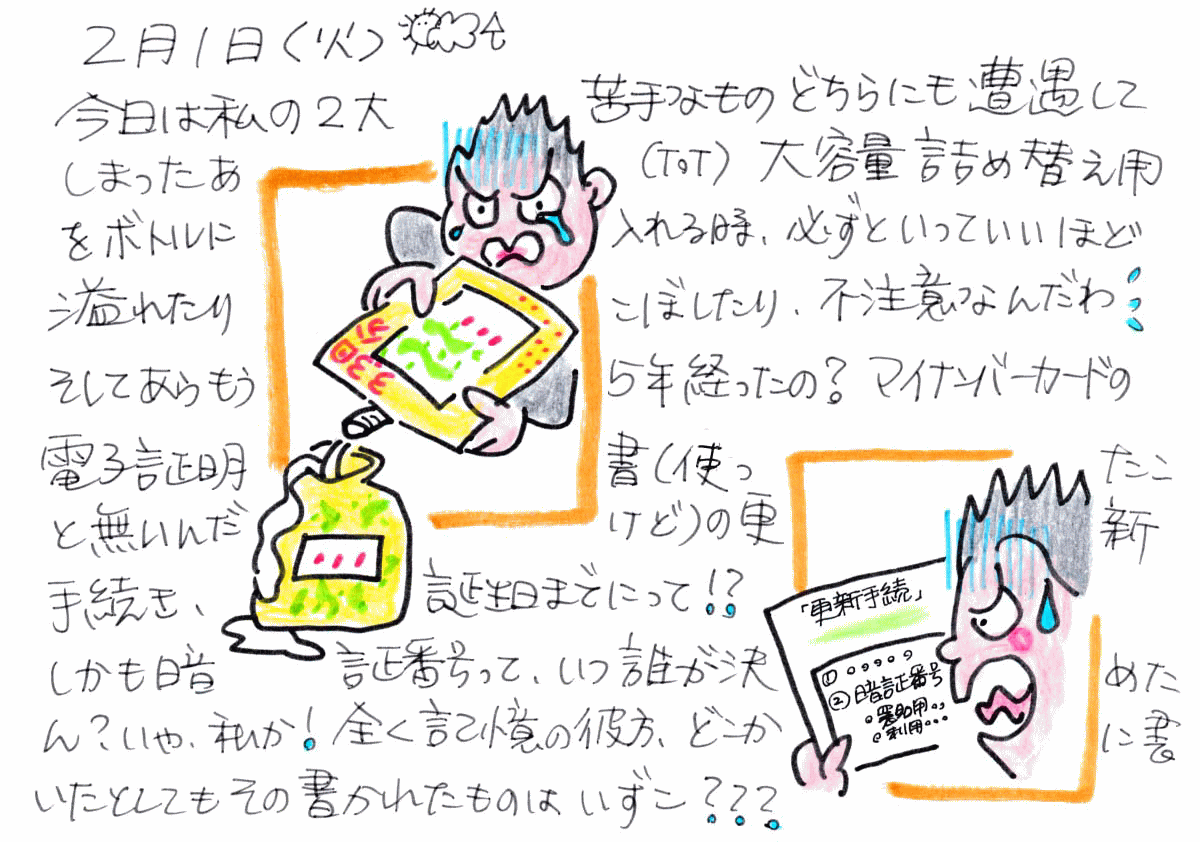 2月1日(火)
今日は私の2大苦手なものどちらにも遭遇して
しまったあ(ToT)大容量詰め替え用
をボトルに入れる時、必ずといっていいほど
溢れたりこぼしたり、不注意なんだわ
そしてあらもう5年経ったの?マイナンバーカードの
電子証明書(使ったこ
と無いんだけど)の更新
手続き、誕生日までにって!?
しかも暗証番号って、いつ誰が決めた
ん?いや、私か!全く記憶の彼方、どこかに書
いたとしてもその書かれたものはいずこ???
「更新手続」
①
②暗証番号
署名用
利用